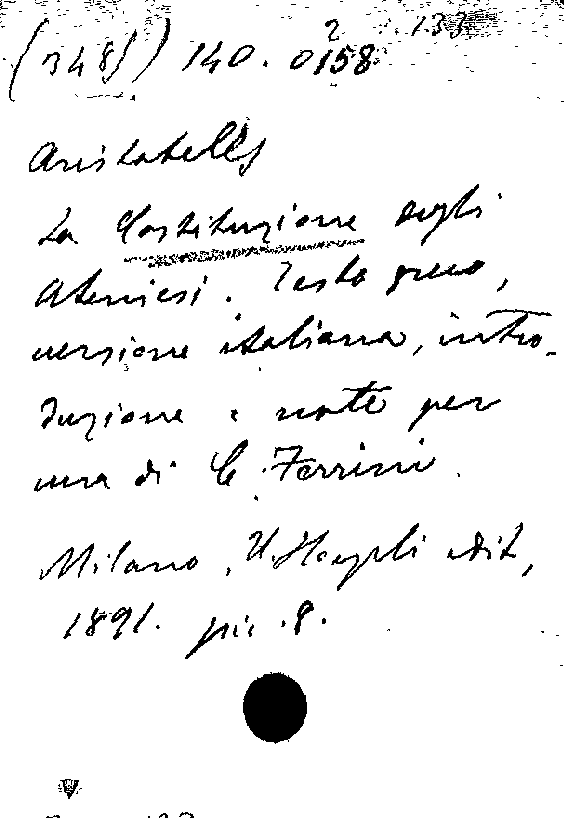 (3485) 140. 0158² .133
Aristoteles
La Costituzione degli
Ateniesi. Testo greco,
versione italiana, intro-
duzione e note per
cura di C. Ferrini.
Milano, U. Hoepli edit,
1891. pic. 8.